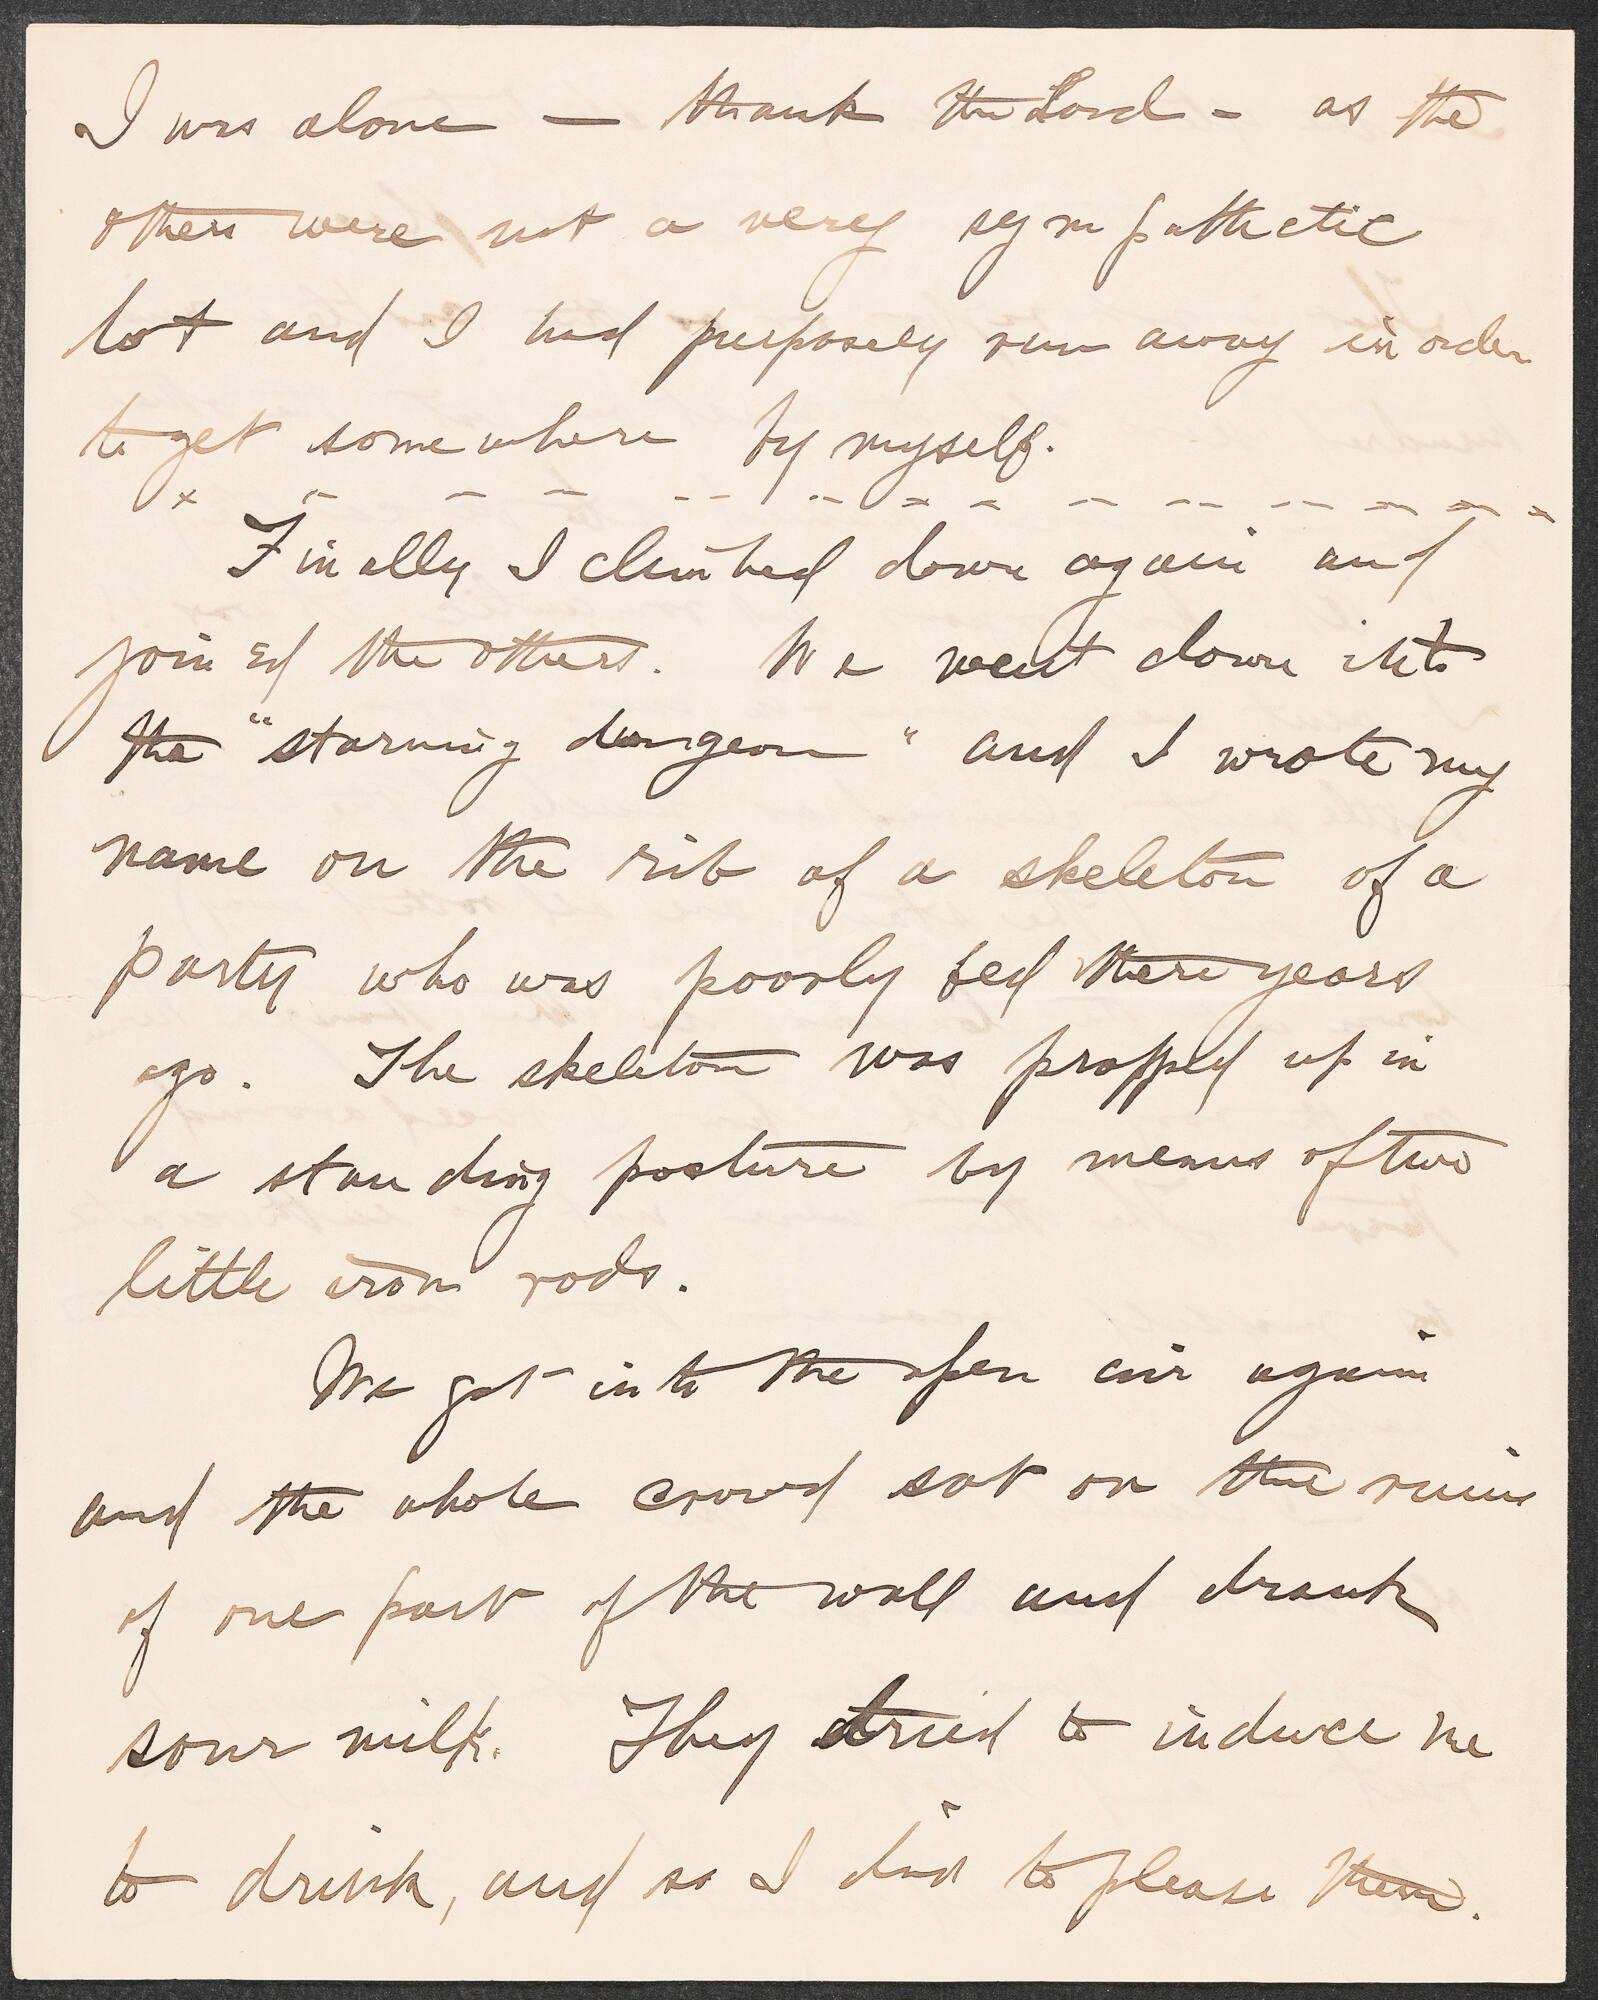 I was alone — thank the Lord - as the
others were not a very sympathetic
lot and I had purposely run away in order
to get somewhere by myself.
x - - - - - - - - - - - - - - x
Finally I climbed down again and
joined the others. We went down into
the "starving dungeon" and I wrote my
name on the rib of a skeleton of a
party who was poorly fed there years
ago. The skeleton was propped up in
a standing posture by means of two
little iron rods.
We got into the open air again
and the whole crowd sat on the ruins
of one part of the wall and drank
sour milk. They tried to induce me
to drink, and so I did to please them.